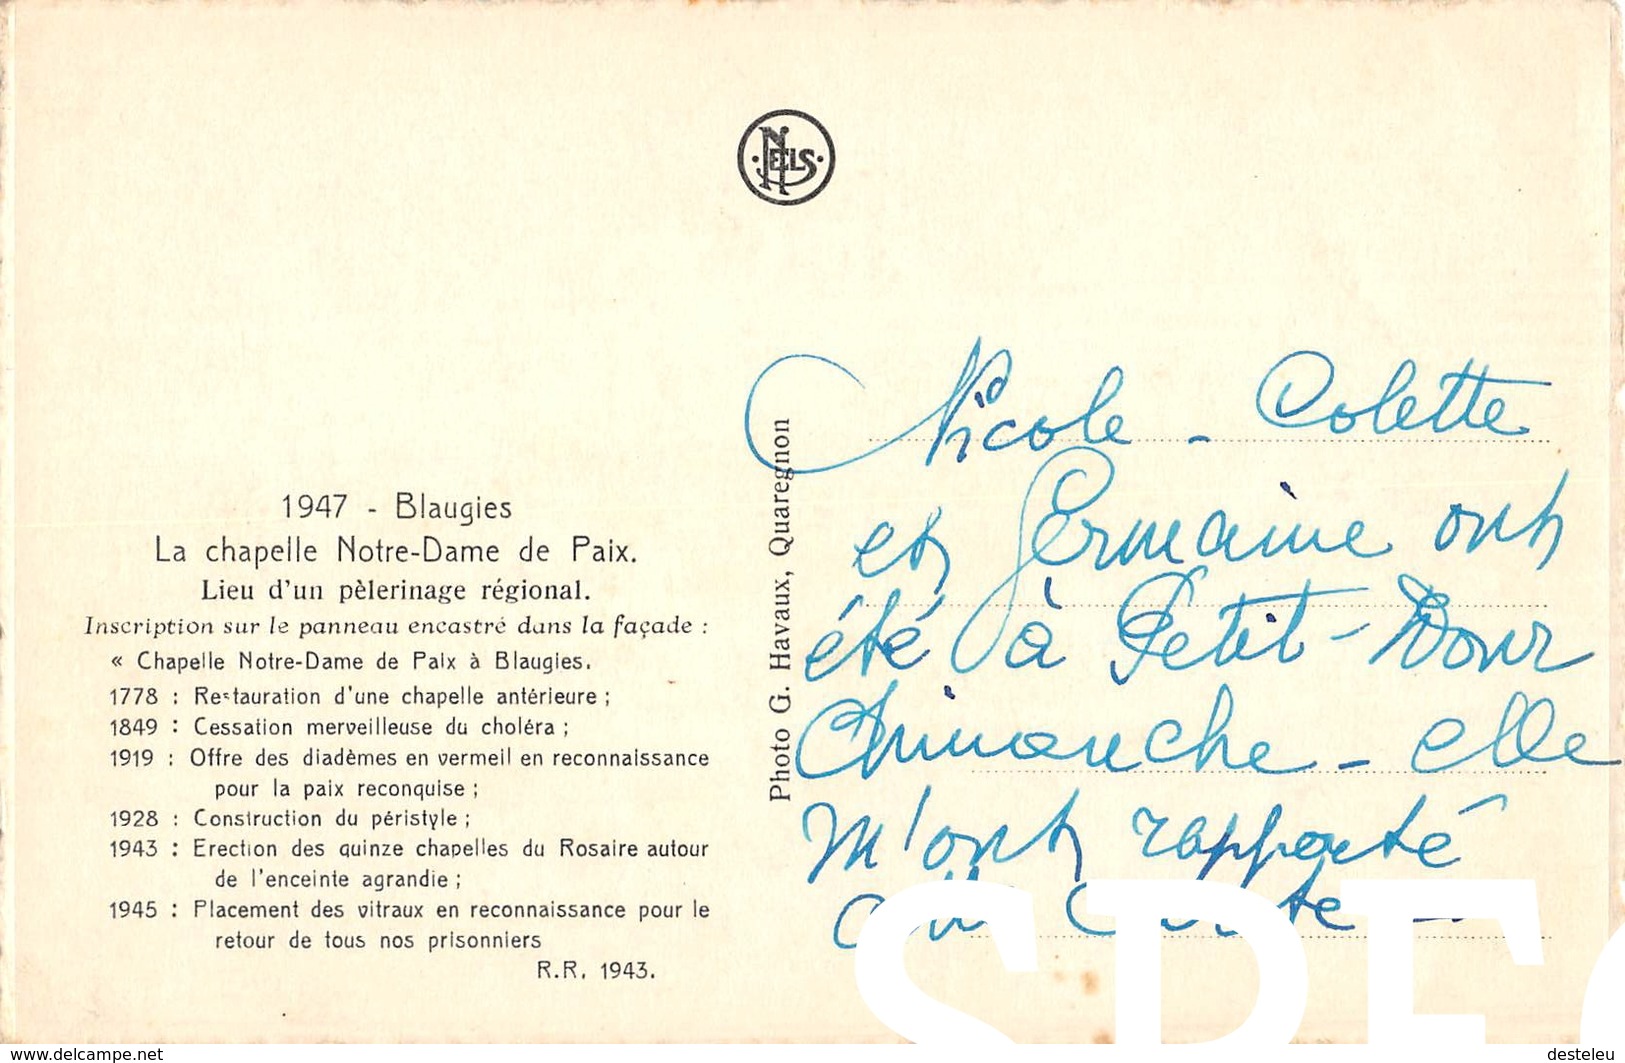 NELS
1947 - Blaugies
La chapelle Notre-Dame de Paix.
Lieu d'un pèlerinage régional.
Inscription sur le panneau encastré dans la façade :
« Chapelle Notre-Dame de Paix à Blaugies.
1778 : Restauration d'une chapelle antérieure ;
1849 : Cessation merveilleuse du choléra ;
1919 : Offre des diadèmes en vermeil en reconnaissance
pour la paix reconquise ;
1928 : Construction du péristyle ;
1943 : Erection des quinze chapelles du Rosaire autour
de l'enceinte agrandie ;
1945 : Placement des vitraux en reconnaissance pour le
retour de tous nos prisonniers
R.R. 1943.
Photo G. Havaux, Quaregnon
Nicole - Colette
et Germaine ont
été à Petit-Dour
Dimanche - elle
m'ont rapporté
SPEC
www.delcampe.net
desteleu